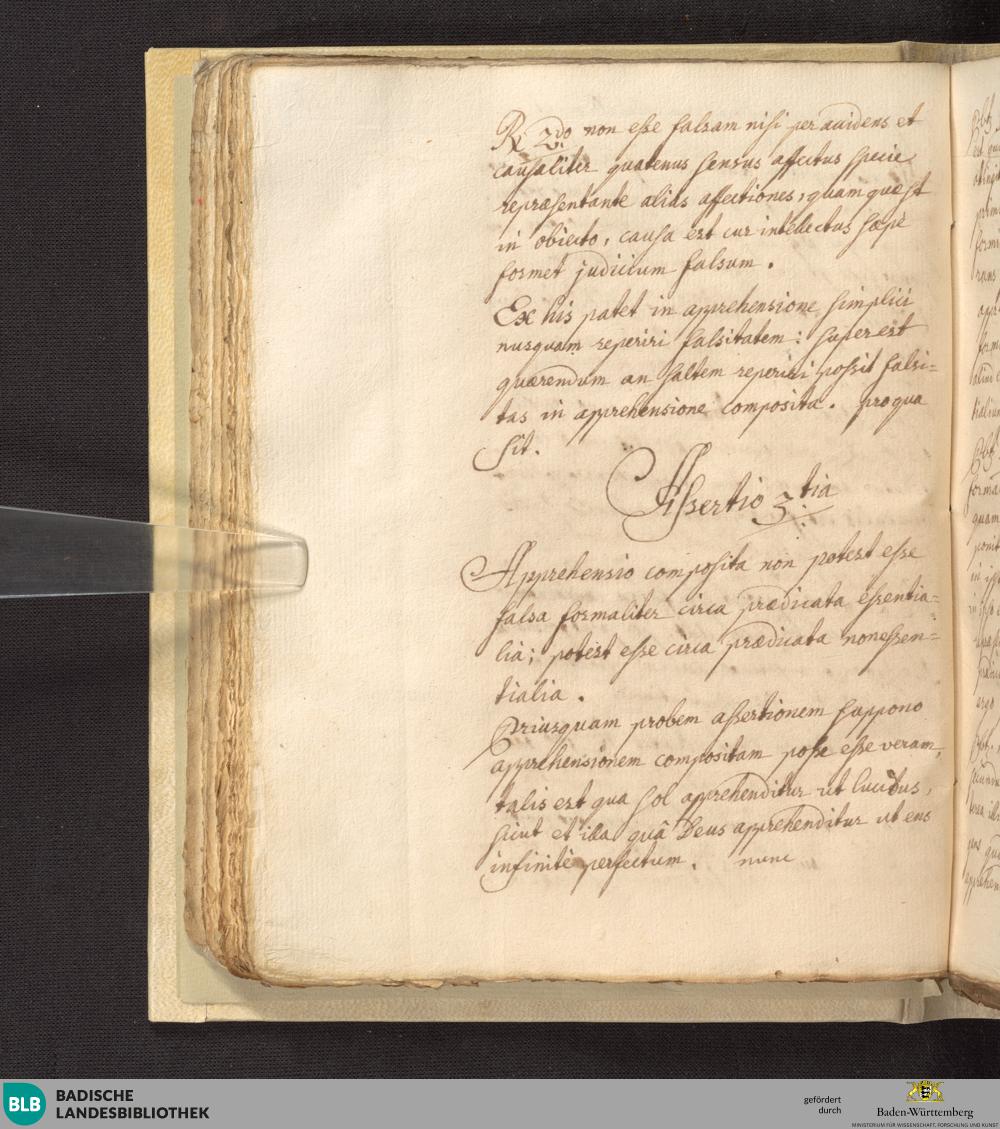 R. 2do non esse falsam nisi per accidens et
causaliter quatenus sensus affectus specie
repræsentante alias affectiones, quam quæ st
in obiecto, causa est cur intellectus sæpe
formet judicium falsum.
Ex his patet in apprehensione simplici
nusquam reperiri falsitatem: superest
quærendum an saltem reperiri possit falsi=
tas in apprehensione composita. pro qua
sit.
Assertio 3tia
Apprehensio composita non potest esse
falsa formaliter circa prædicata essentia=
lia; potest esse circa prædicata nonessen=
tialia.
Priusquam probem assertionem suppono
apprehensionem compositam posse esse veram,
talis est qua sol apprehenditur ut lucidus,
sicut et illa quâ Deus apprehenditur ut ens
infinitè perfectum. nunc
BLB BADISCHE
LANDESBIBLIOTHEK
gefördert
durch
Baden-Württemberg
MINISTERIUM FÜR WISSENSCHAFT, FORSCHUNG UND KUNST